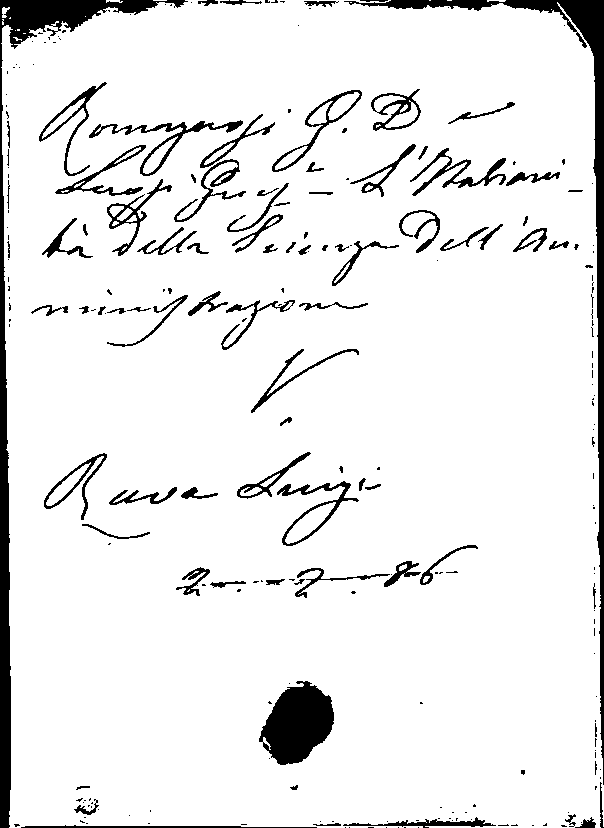 Romagnosi G. D e
Luosi Gius - L'Italiani-
tà della Scienza Dell'Am
ministrazione
V.
Rava Luigi
2. 2. 86